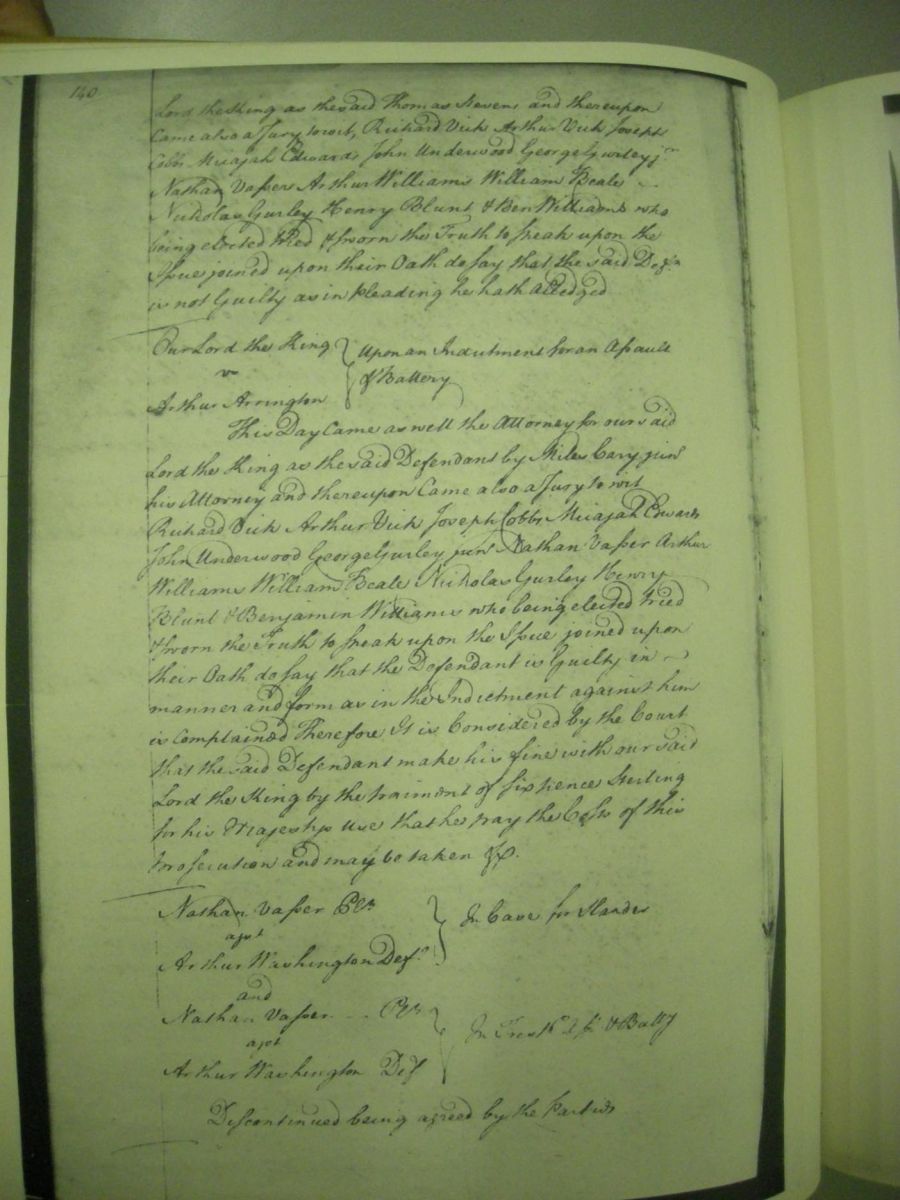 140
Lord the King as the said Thomas Stevens and thereupon
Came also a Jury to wit, Richard Vick Arthur Vick Joseph
Cobbs Micajah Edwards John Underwood George Gurley jr
Nathan Vasser Arthur Williams William Beale
Nicholas Gurley Henry Blunt & Ben Williams who
being elected tried & sworn the Truth to speak upon the
Issue joined upon their Oath do say that the said Defn
is not Guilty as in pleading he hath Alledged
Our Lord the King
vs
Arthur Arrington
Upon an Indictment for an Assault
& Battery
This Day Came as well the Attorney for our said
Lord the King as the said Defendant by Miles Cary junr
his Attorney and thereupon Came also a Jury to wit
Richard Vick Arthur Vick Joseph Cobbs Micajah Edwards
John Underwood George Gurley junr Nathan Vasser Arthur
Williams William Beale Nicholas Gurley Henry
Blunt & Benjamin Williams who being elected tried
& sworn the Truth to speak upon the Issue joined upon
their Oath do say that the Defendant is Guilty in
manner and form as in the Indictment against him
is complained Therefore It is Considered by the Court
that the said Defendant make his fine with our said
Lord the King by the paiment of six pence Sterling
for his Majestys use that he pay the Costs of this
prosecution and may be taken &c.
Nathan Vasser Plt
agst
Arthur Washington Deft
In Case for Slander
and
Nathan Vasser Plt
agst
Arthur Washington Def
In Tresps & Batty
Discontinued being agreed by the Parties